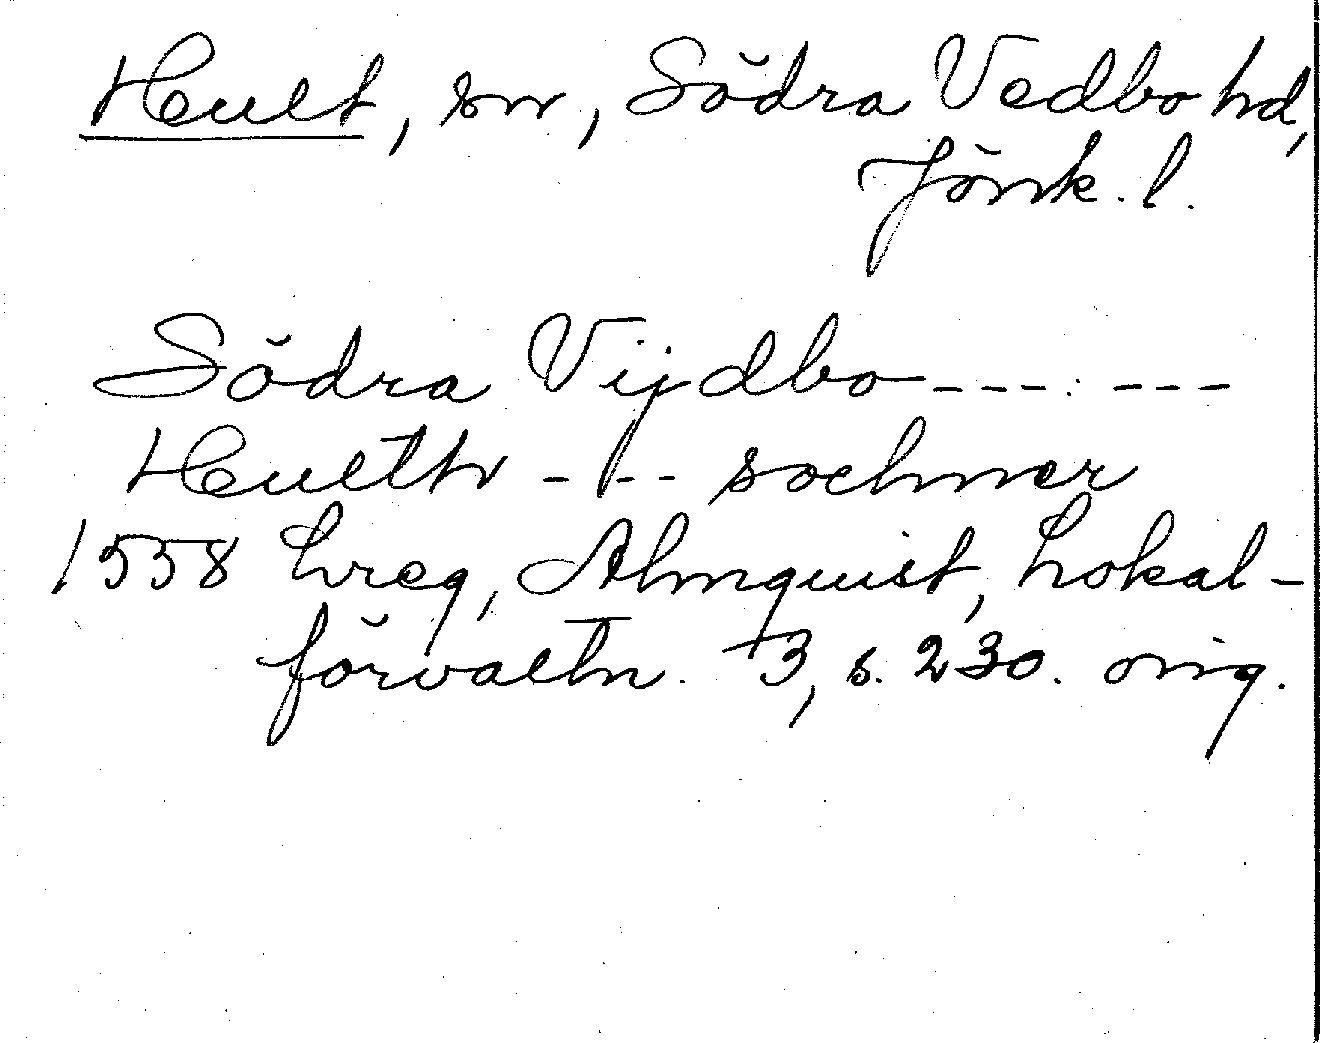 Hult, sn, Södra Vedbo hd,
Jönk. l.
Södra Vijdbo --- : ---
Hulth --- sochner
1558 Lreg, Almquist, Lokal-
förvaltn. 3, s. 230. orig.